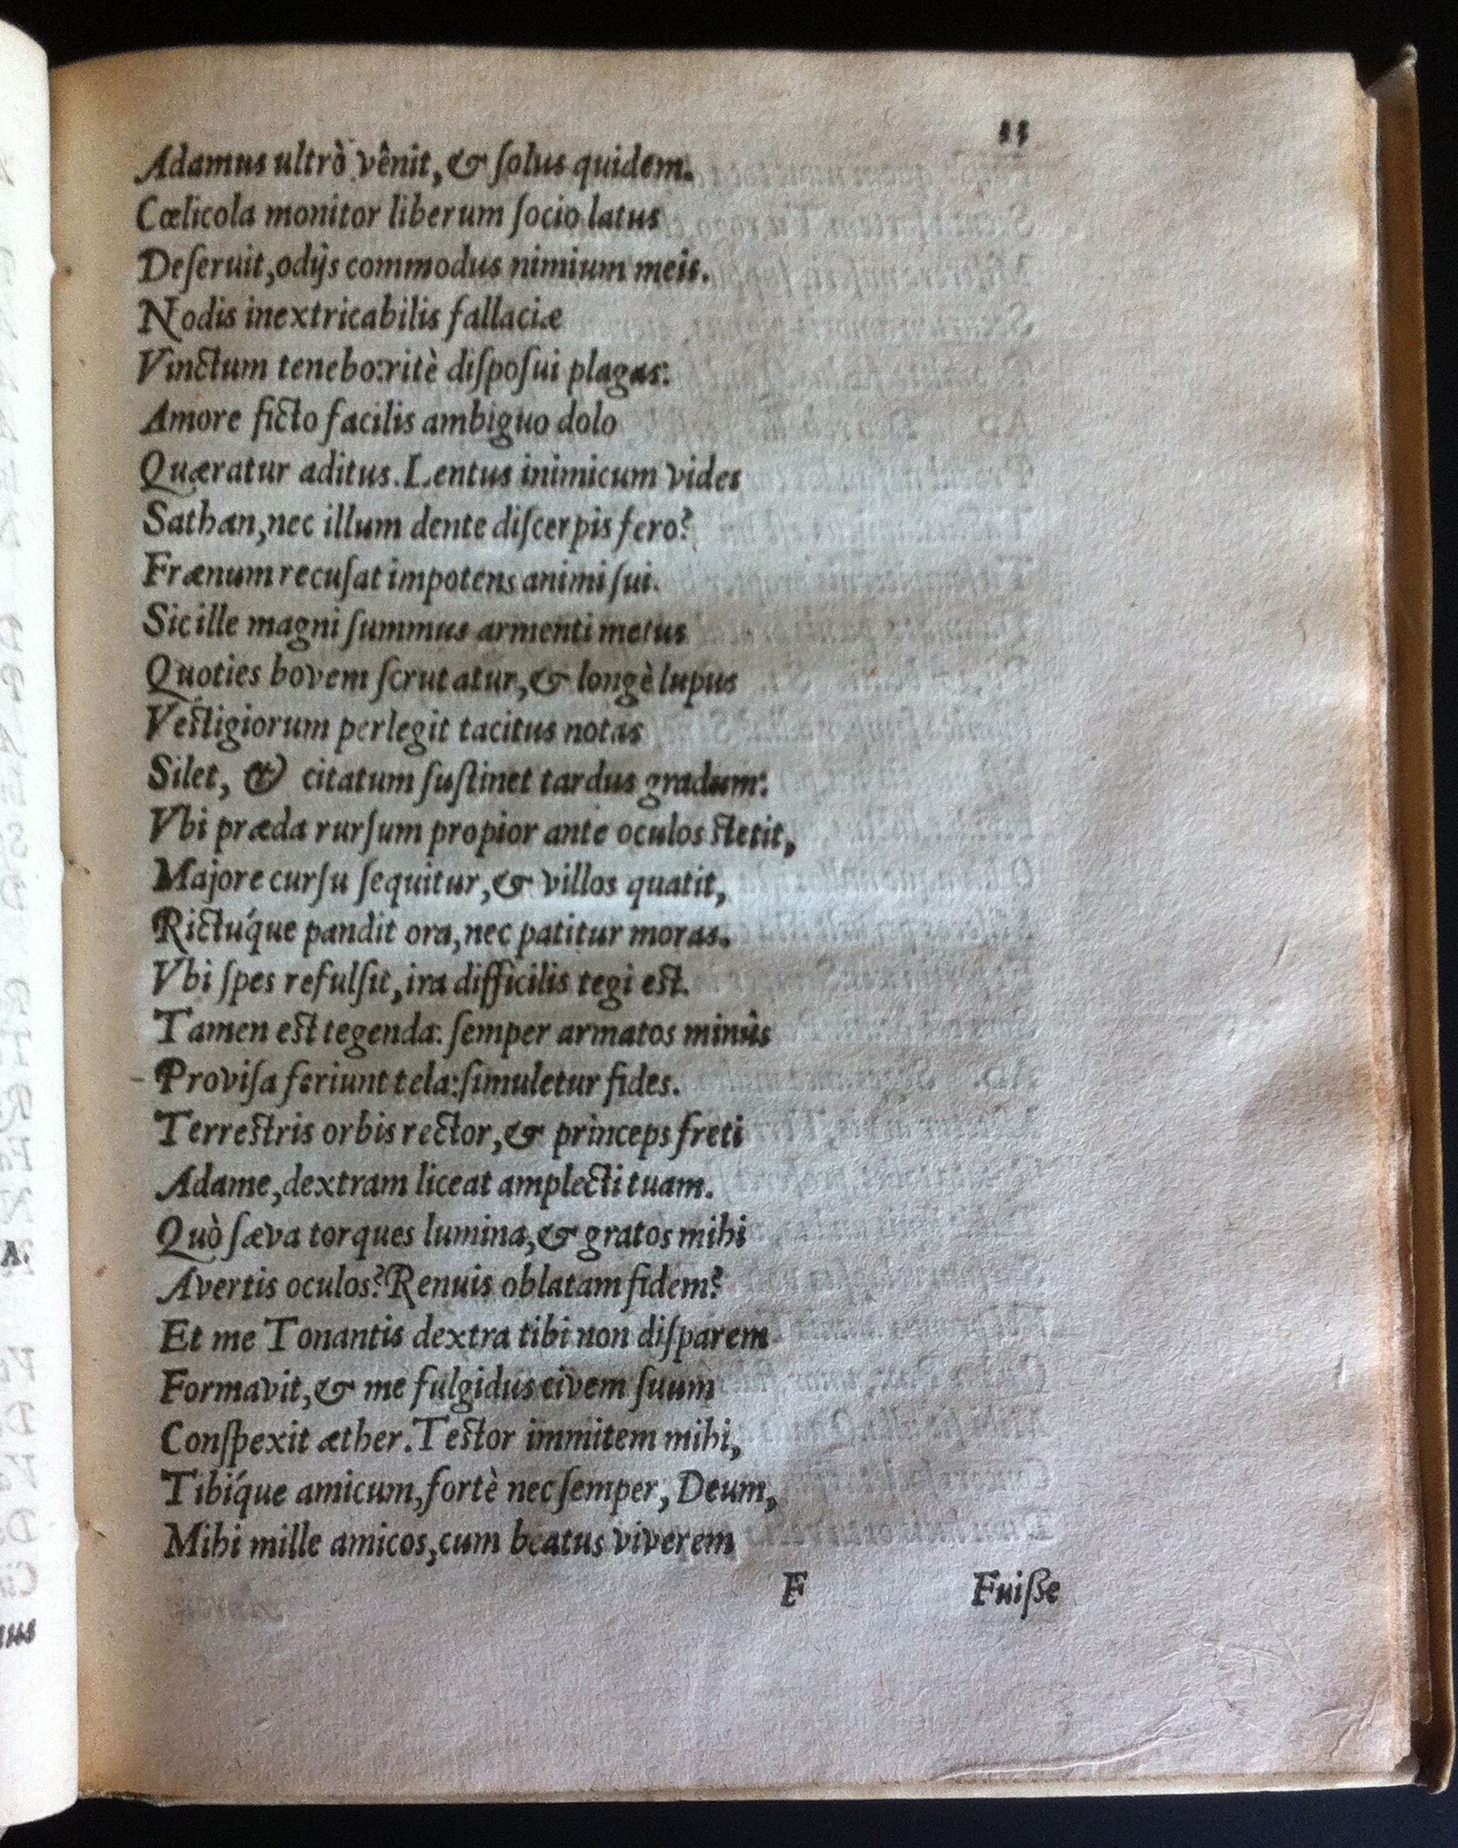 Adamus ultrò vênit, & ſolus quidem.
Cœlicola monitor liberum ſocio latus
Deſeruit, odijs commodus nimium meis.
Nodis inextricabilis fallaciæ
Vinctum tenebo: ritè diſpoſui plagas:
Amore ficto facilis ambiguo dolo
Quæratur aditus. Lentus inimicum vides
Sathan, nec illum dente diſcerpis fero?
Frænum recuſat impotens animi ſui.
Sic ille magni ſummus armenti metus
Quoties bovem ſcrutatur, & longè lupus
Veſtigiorum perlegit tacitus notas
Silet, & citatum ſuſtinet tardus gradum:
Vbi præda rurſum propior ante oculos ſtetit,
Majore curſu ſequitur, & villos quatit,
Rictúque pandit ora, nec patitur moras.
Vbi ſpes refulſit, ira difficilis tegi eſt.
Tamen eſt tegenda: ſemper armatos minùs
Proviſa feriunt tela: ſimuletur fides.
Terreſtris orbis rector, & princeps freti
Adame, dextram liceat amplecti tuam.
Quò ſæva torques lumina, & gratos mihi
Avertis oculos? Renuis oblatam fidem?
Et me Tonantis dextra tibi non diſparem
Formavit, & me fulgidus civem ſuum
Conſpexit æther. Teſtor immitem mihi,
Tibíque amicum, fortè nec ſemper, Deum,
Mihi mille amicos, cum beatus viverem
F Fuiſſe